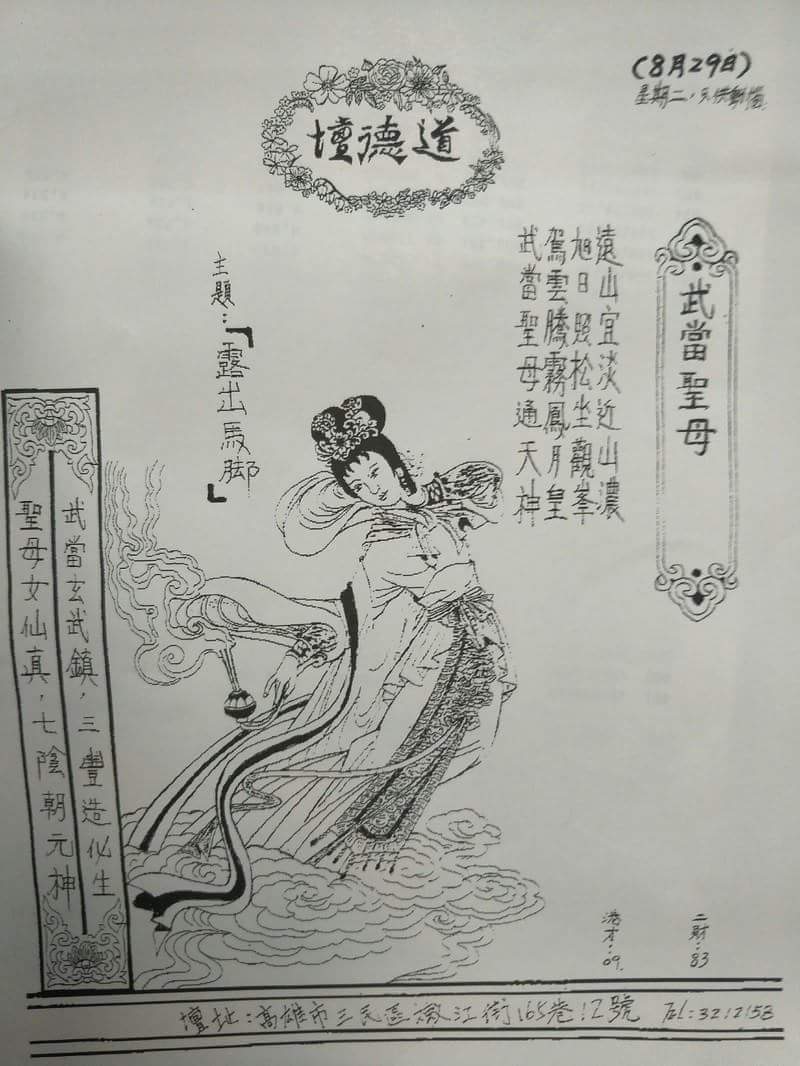 (8月29日)
星期二，
道德壇
武當聖母
遠山宜淡近山濃
旭日照松坐觀峯
駕雲騰霧鳳月皇
武當聖母通天神
主題：「露出馬脚」
武當玄武鎮，三豐造化生
聖母女仙真，七陰朝元神
二財：83
港才：09.
壇址：高雄市三民區嫩江街165巷12號 TEL:3212158